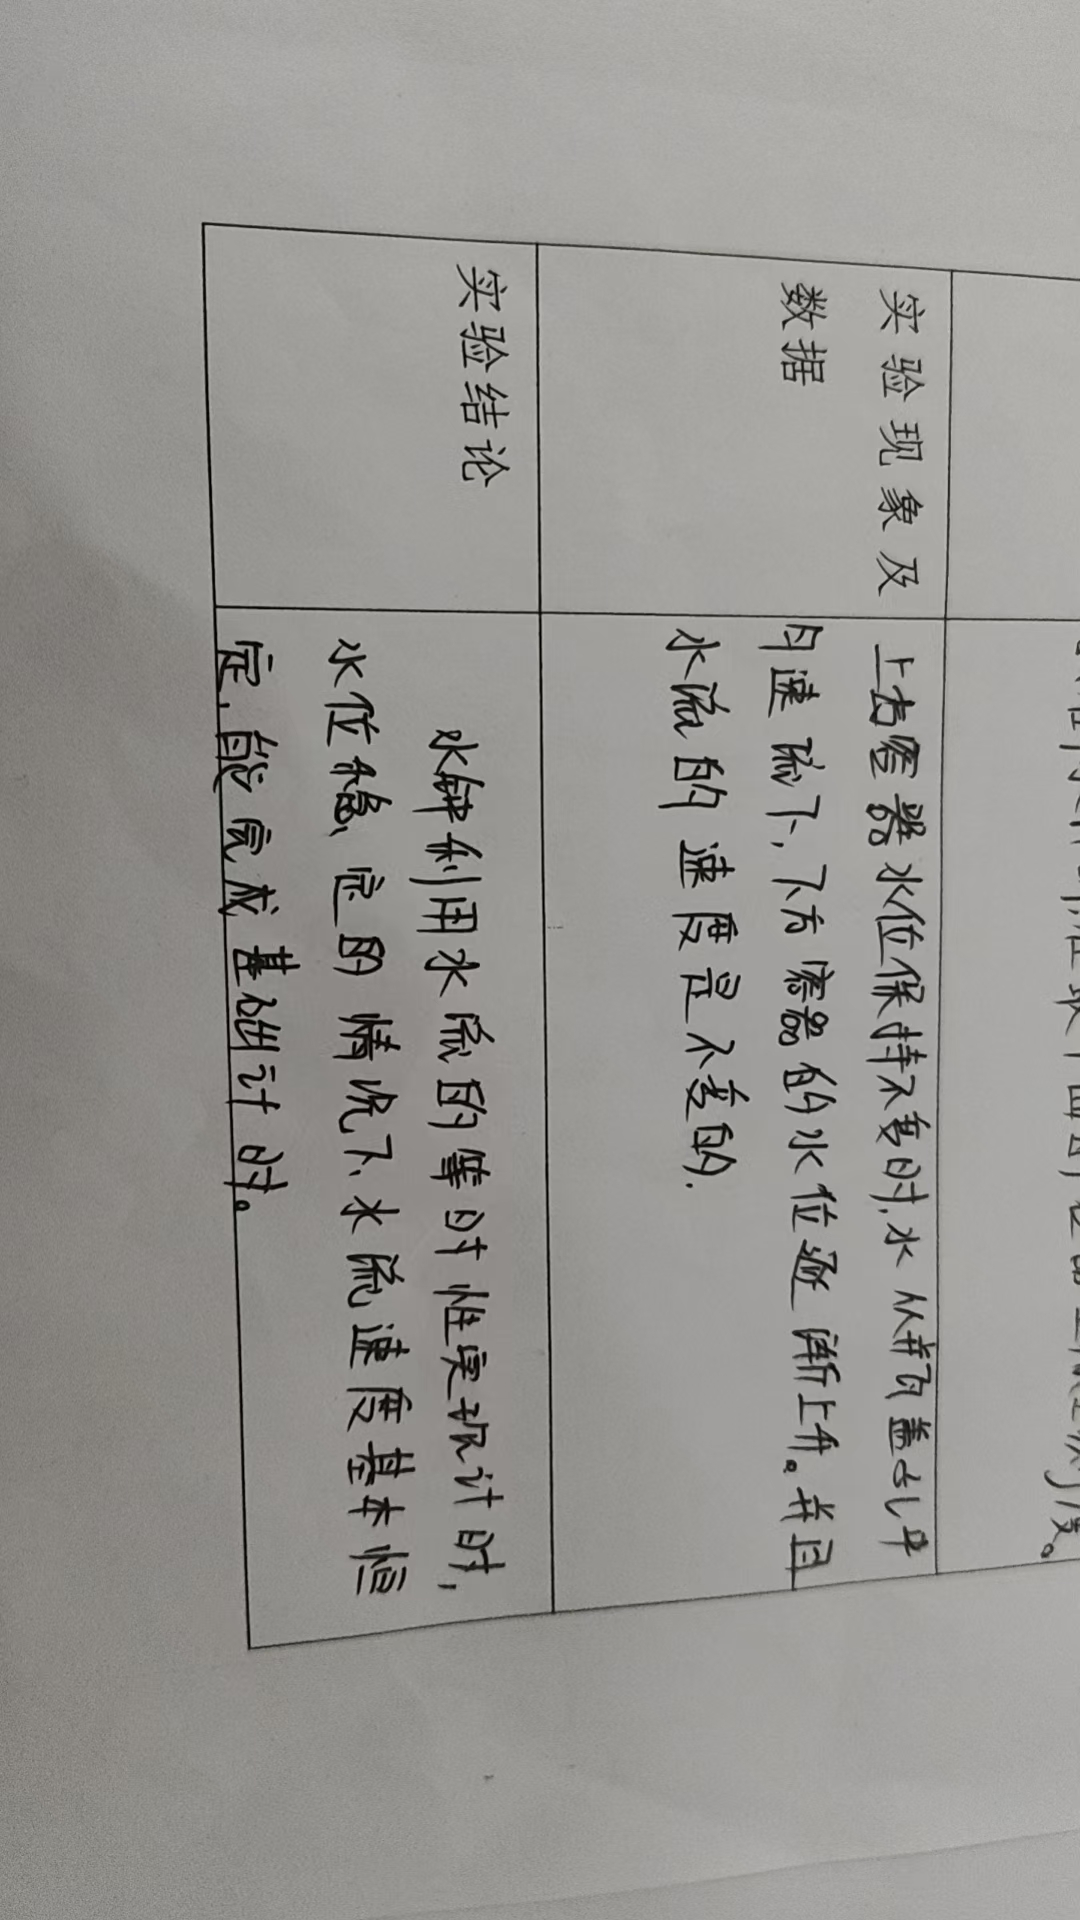 实验现象及
数据
上方容器水位保持不变时,水从瓶盖孔中
匀速流下,下方容器的水位逐渐上升。并且
水流的速度是不变的.
实验结论
水钟利用水流的等时性实现计时,
水位稳定的情况下,水流速度基本恒
定,能完成基础计时。